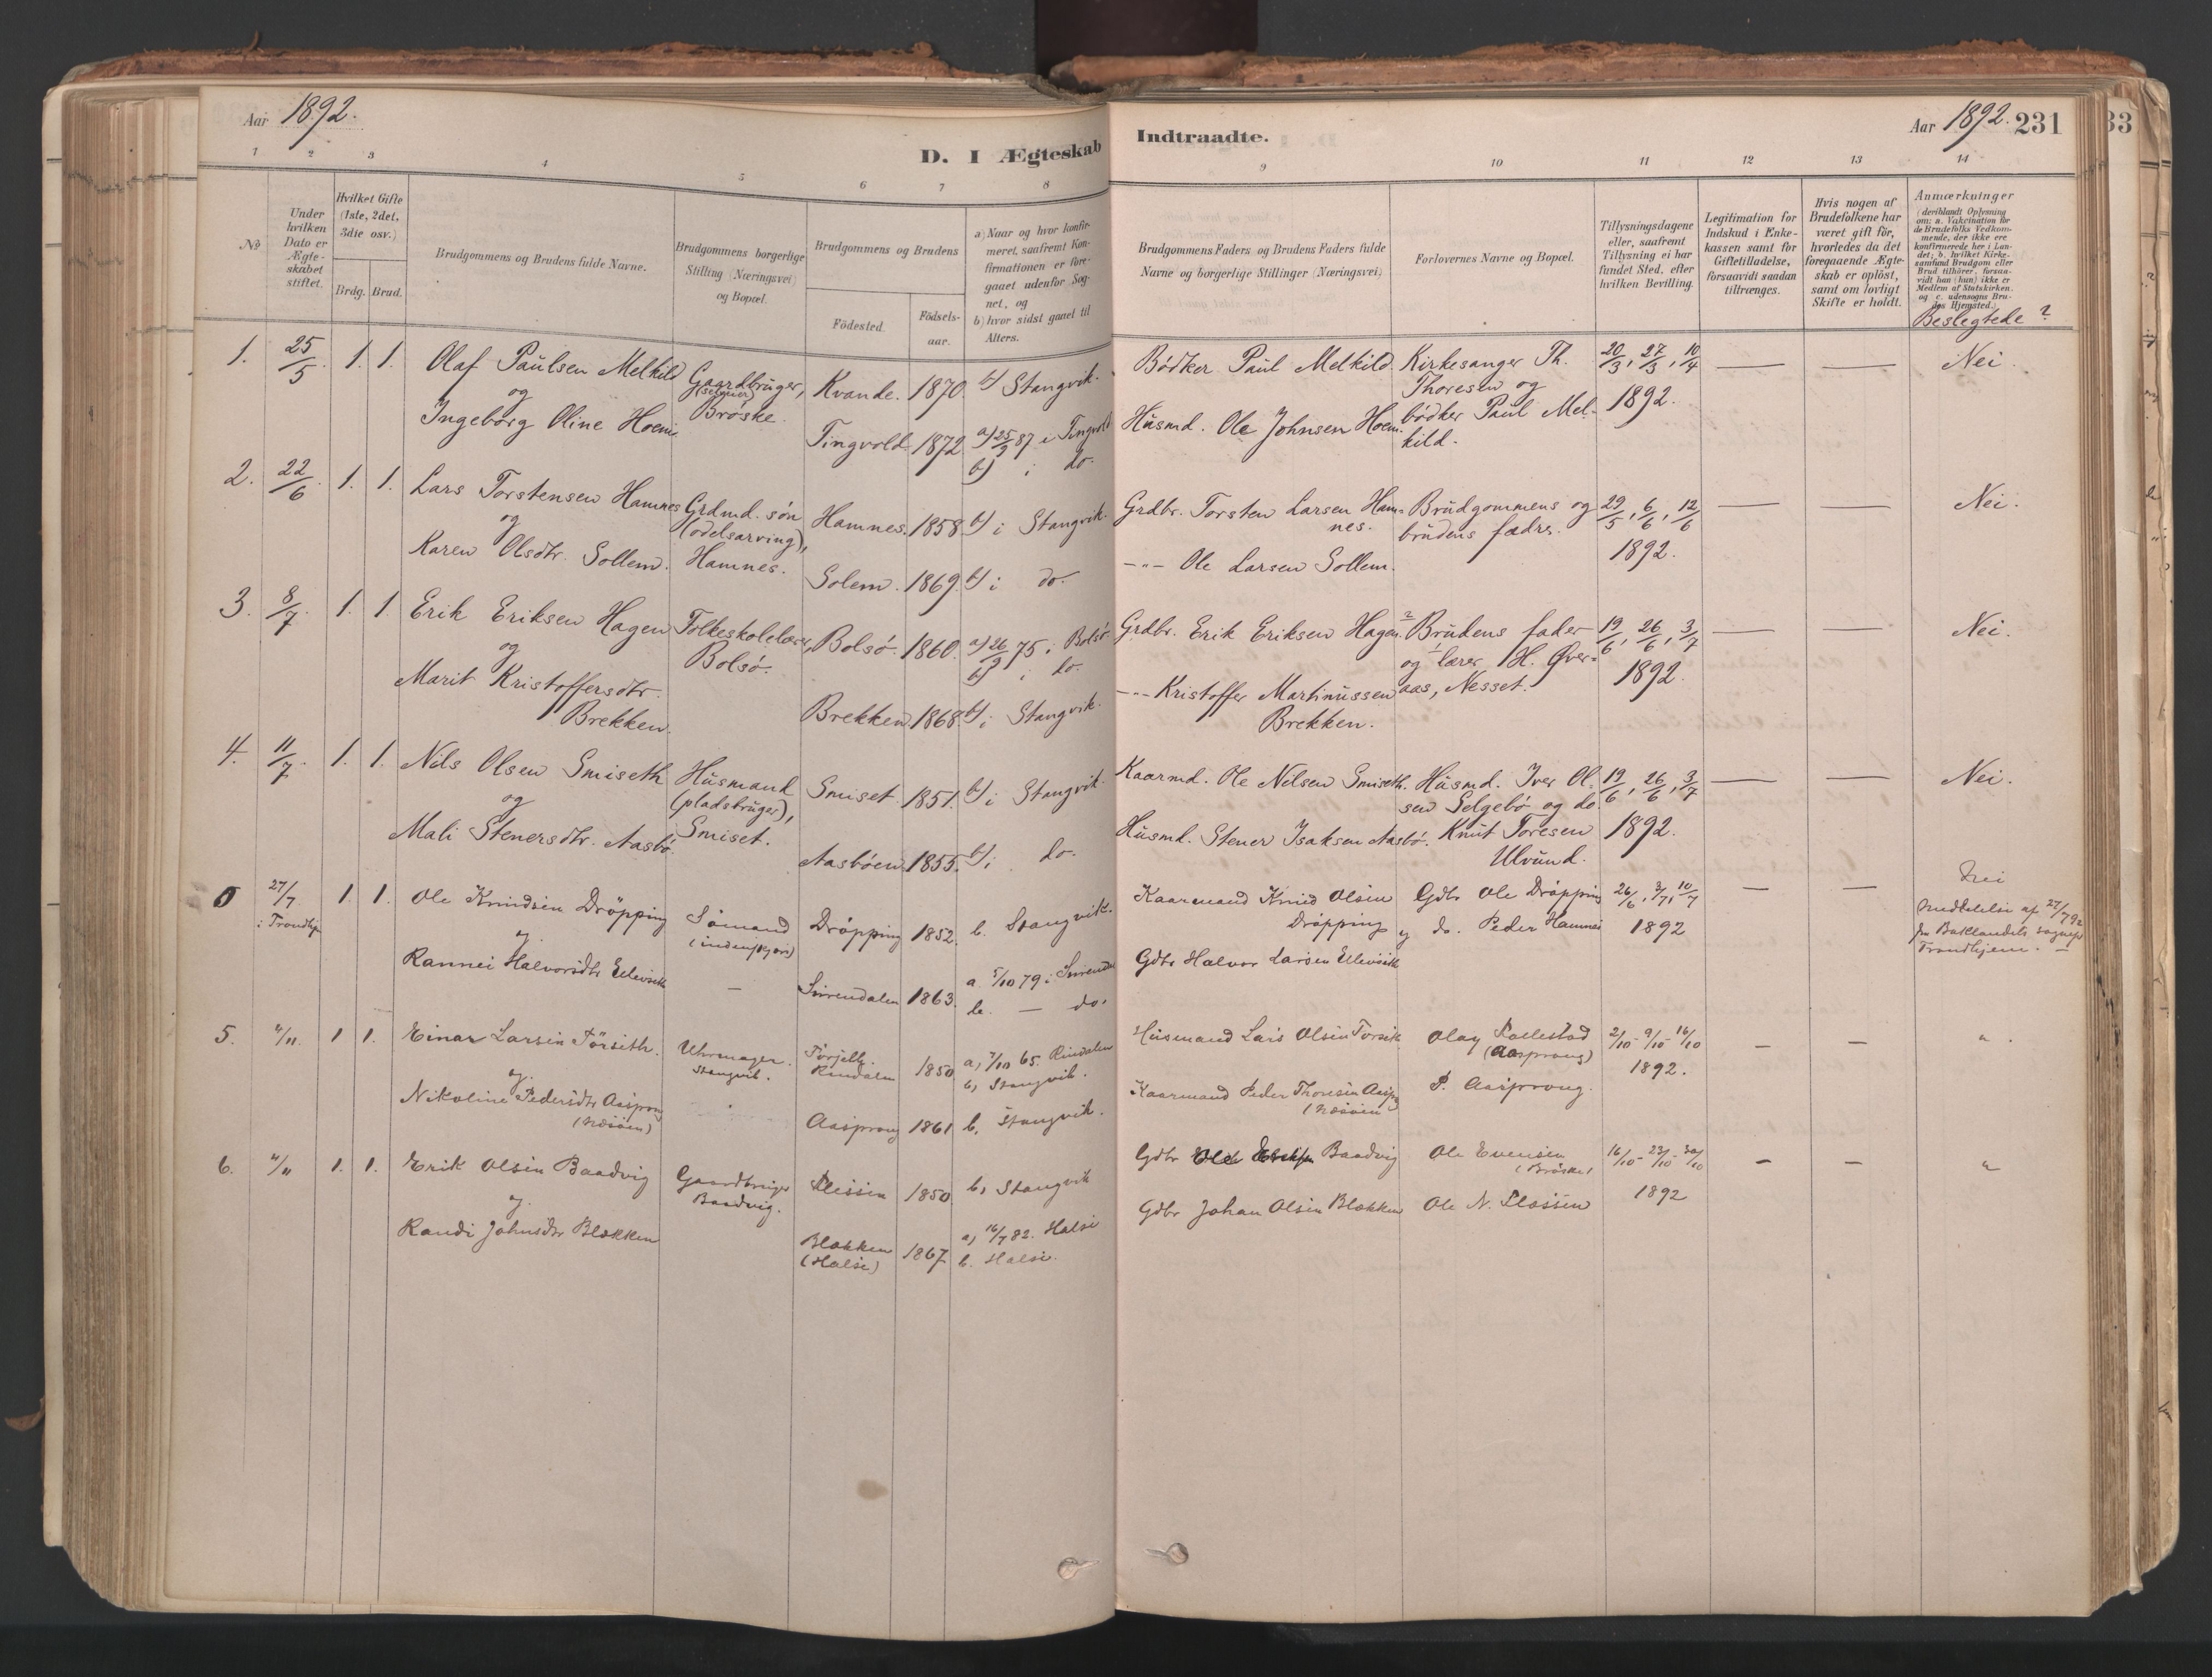 Aar 1892.
D. I Ægteskab
1 2 3 4 5 6 7 8
No
Under hvilken Dato er Ægteskabet stiftet.
Hvilket Gifte (1ste, 2det, 3die osv.)
Brdg. Brud.
Brudgommens og Brudens fulde Navne.
Brudgommens borgerlige Stilling (Næringsvei) og Bopæl.
Brudgommens og Brudens
Fødested.
Fødselsaar.
a) Naar og hvor konfirmeret, saafremt Konfirmationen er foregaaet udenfor Sognet, og
b) hvor sidst gaaet til Alters.
1. 25/5. 1. 1. Olaf Paulsen Melkild
og
Ingeborg Oline Hoem
Gaardbruger, (selveier) Brøske.
Kvande. 1870. b) Stangvik.
Tingvold 1872 a) 25/9 87 i Tingvold
b) i do.
2. 22/6. 1. 1. Lars Torstensen Hamnes
og
Karen Olsdtr. Sollem.
Grdmd. søn (odelsarving), Hamnes.
Hamnes. 1858. b) i Stangvik.
Solem. 1869. b) i do.
3. 8/7. 1. 1. Erik Eriksen Hagen
og
Marit Kristoffersdtr.
Brekken.
Folkeskolelærer, Bolsø.
Bolsø. 1860. a) 26/9 75 i Bolsø
b) i do.
Brekken 1868. b) i Stangvik.
4. 11/7 1. 1. Nils Olsen Smiseth
og
Mali Stenersdtr. Aasbø.
Husmand (pladsbruger), Smiset.
Smiset. 1851. b) i Stangvik.
Aasbøen 1855. b) i do.
0 27/7 i Trondhjm 1. 1. Ole Knudsen Drøpping
og
Rannei Halvorsdtr Ellevseth
Sømand (indenskjærs)
—
Drøpping 1852. b. Stangvik.
Surendalen 1863. a. 5/10 79 i Surendal
b. — do.
5. 4/11. 1 1. Einar Larsen Torseth.
og
Nikoline Pedersdtr Aasprong
(Næsøen)
Uhrmager. Stangvik.
Torjell. Rindalen 1850 a, 7/10 65. Rindalen
b, Stangvik.
Aasprong 1861 b, Stangvik.
6. 4/11 1. 1. Erik Olsen Baadvig
og
Randi Johnsdtr Blekken
Gaardbruger Baadvig.
1850 b, Stangvik
Blekken (Halse) 1867 a, 16/7 82. Halse
b. Halse.
Indtraadte.
Aar 1892. 231
33
9 10 11 12 13 14
Brudgommens Faders og Brudens Faders fulde Navne og borgerlige Stillinger (Næringsvei)
Forlovernes Navne og Bopæl.
Tillysningsdagene eller, saafremt Tillysning ei har fundet Sted, efter hvilken Bevilling.
Legitimation for Indskud i Enkekassen samt for Giftetilladelse, forsaavidt saadan tiltrænges.
Hvis nogen af Brudefolkene har været gift før, hvorledes da det foregaaende Ægteskab er opløst, samt om lovligt Skifte er holdt.
Anmærkninger
(deriblandt Oplysning om: a. Vakcination for de Brudefolks Vedkommende, der ikke ere konfirmerede her i Landet; b. hvilket Kirkesamfund Brudgom eller Brud tilhører, forsaavidt han (hun) ikke er Medlem af Statskirken, og c. udensogns Brudes Hjemsted.)
Beslegtede?
Bødker Paul Melkild.
Husmd. Ole Johnsen Hoem.
Kirkesanger Th.
Thoresen og
bødker Paul Mel-
kild.
20/3, 27/3, 10/4
1892.
— — Nei.
Grdbr. Torsten Larsen Ham-
nes.
-"- Ole Larsen Sollem.
Brudgommens og
brudens fædre.
29/5, 6/6, 12/6
1892.
— — Nei.
Grdbr. Erik Eriksen Hagen.
-"- Kristoffer Martinussen
Brekken.
Brudens fader
og lærer H. Øver-
aas, Nesset.
19/6, 26/6, 3/7
1892.
— — Nei.
Kaarmd. Ole Nilsen Smiseth.
Husmd. Stener Isaksen Aasbø.
Husmd. Iver Ol-
sen Selgebø og do.
Knut Toresen
Ulvund.
19/6, 26/6, 3/7
1892.
— — Nei.
Kaarmand Knud Olsen
Drøpping
Gdbr Halvor Larsen Ellevseth
Gdbr Ole Drøpping
og do. Peder Hamnes
26/6, 3/7, 10/7
1892
— — Nei
Meddelelse af 27/7 92
fra Baklandets sognepr
Trondhjem. —
Husmand Lars Olsen Torseth
Kaarmand Peder Thoresen Aaspr
(Næsøen
Olay
(Aasprong)
P. Aasprong.
2/10 - 9/10 - 16/10
1892.
— — "
Gdbr Ole Baadvig
Gdbr Johan Olsen Blekken
Ole Evensen
(Brøske)
Ole N.
16/10 - 23/10 - 30/10
1892
— — "